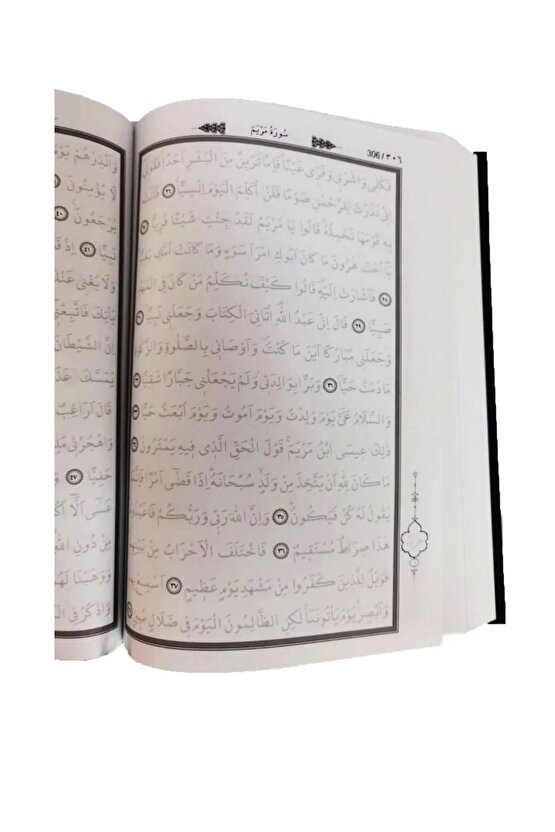 سُورَةُ مَرْيَمَ
306/٣٠٦
فَكُلِي وَاشْرَبِي وَقَرِّي عَيْنًا فَاِمَّا تَرَيِنَّ مِنَ الْبَشَرِ اَحَدًا فَقُولِي
اِنِّي نَذَرْتُ لِلرَّحْمٰنِ صَوْمًا فَلَنْ اُكَلِّمَ الْيَوْمَ اِنْسِيًّا ٢٦ فَاَتَتْ
بِهِ قَوْمَهَا تَحْمِلُهُ قَالُوا يَا مَرْيَمُ لَقَدْ جِئْتِ شَيْئًا فَرِيًّا
يَٓا اُخْتَ هٰرُونَ مَا كَانَ اَبُوكِ امْرَاَ سَوْءٍ وَمَا كَانَتْ اُمُّكِ بَغِيًّا
٢٨ فَاَشَارَتْ اِلَيْهِ قَالُوا كَيْفَ نُكَلِّمُ مَنْ كَانَ فِي الْمَهْدِ
صَبِيًّا ٢٩ قَالَ اِنِّي عَبْدُ اللّٰهِ اٰتَانِيَ الْكِتَابَ وَجَعَلَنِي نَبِيًّا
وَجَعَلَنِي مُبَارَكًا اَيْنَ مَا كُنْتُ وَاَوْصَانِي بِالصَّلٰوةِ وَالزَّكٰوةِ
مَا دُمْتُ حَيًّا ٣١ وَبَرًّا بِوَالِدَتِي وَلَمْ يَجْعَلْنِي جَبَّارًا شَقِيًّا
وَالسَّلَامُ عَلَيَّ يَوْمَ وُلِدْتُ وَيَوْمَ اَمُوتُ وَيَوْمَ اُبْعَثُ حَيًّا
ذٰلِكَ عِيسَى ابْنُ مَرْيَمَ قَوْلَ الْحَقِّ الَّذِي فِيهِ يَمْتَرُونَ
مَا كَانَ لِلّٰهِ اَنْ يَتَّخِذَ مِنْ وَلَدٍ سُبْحَانَهُ اِذَا قَضٰٓى اَمْرًا فَاِنَّمَا
يَقُولُ لَهُ كُنْ فَيَكُونُ ٣٥ وَاِنَّ اللّٰهَ رَبِّي وَرَبُّكُمْ فَاعْبُدُوهُ
هٰذَا صِرَاطٌ مُسْتَقِيمٌ ٣٦ فَاخْتَلَفَ الْاَحْزَابُ مِنْ بَيْنِهِمْ
فَوَيْلٌ لِلَّذِينَ كَفَرُوا مِنْ مَشْهَدِ يَوْمٍ عَظِيمٍ ٣٧ اَسْمِعْ بِهِمْ
وَاَبْصِرْ يَوْمَ يَأْتُونَنَا لٰكِنِ الظَّالِمُونَ الْيَوْمَ فِي ضَلَالٍ مُبِينٍ
وَاَنْذِرْهُمْ يَوْمَ
لَا يُؤْمِنُونَ
يُرْجَعُونَ ٤٠
نَبِيًّا ٤١ اِذْ
وَلَا يُغْنِي عَنْكَ
يَأْتِكَ فَاتَّبِعْنِي
اِنَّ الشَّيْطَانَ
يَمَسَّكَ
قَالَ اَرَاغِبٌ
وَاهْجُرْنِي
حَفِيًّا ٤٧
عَسٰٓى اَلَّٓا
مِنْ دُونِ اللّٰهِ
وَوَهَبْنَا لَهُمْ
وَاذْكُرْ فِي